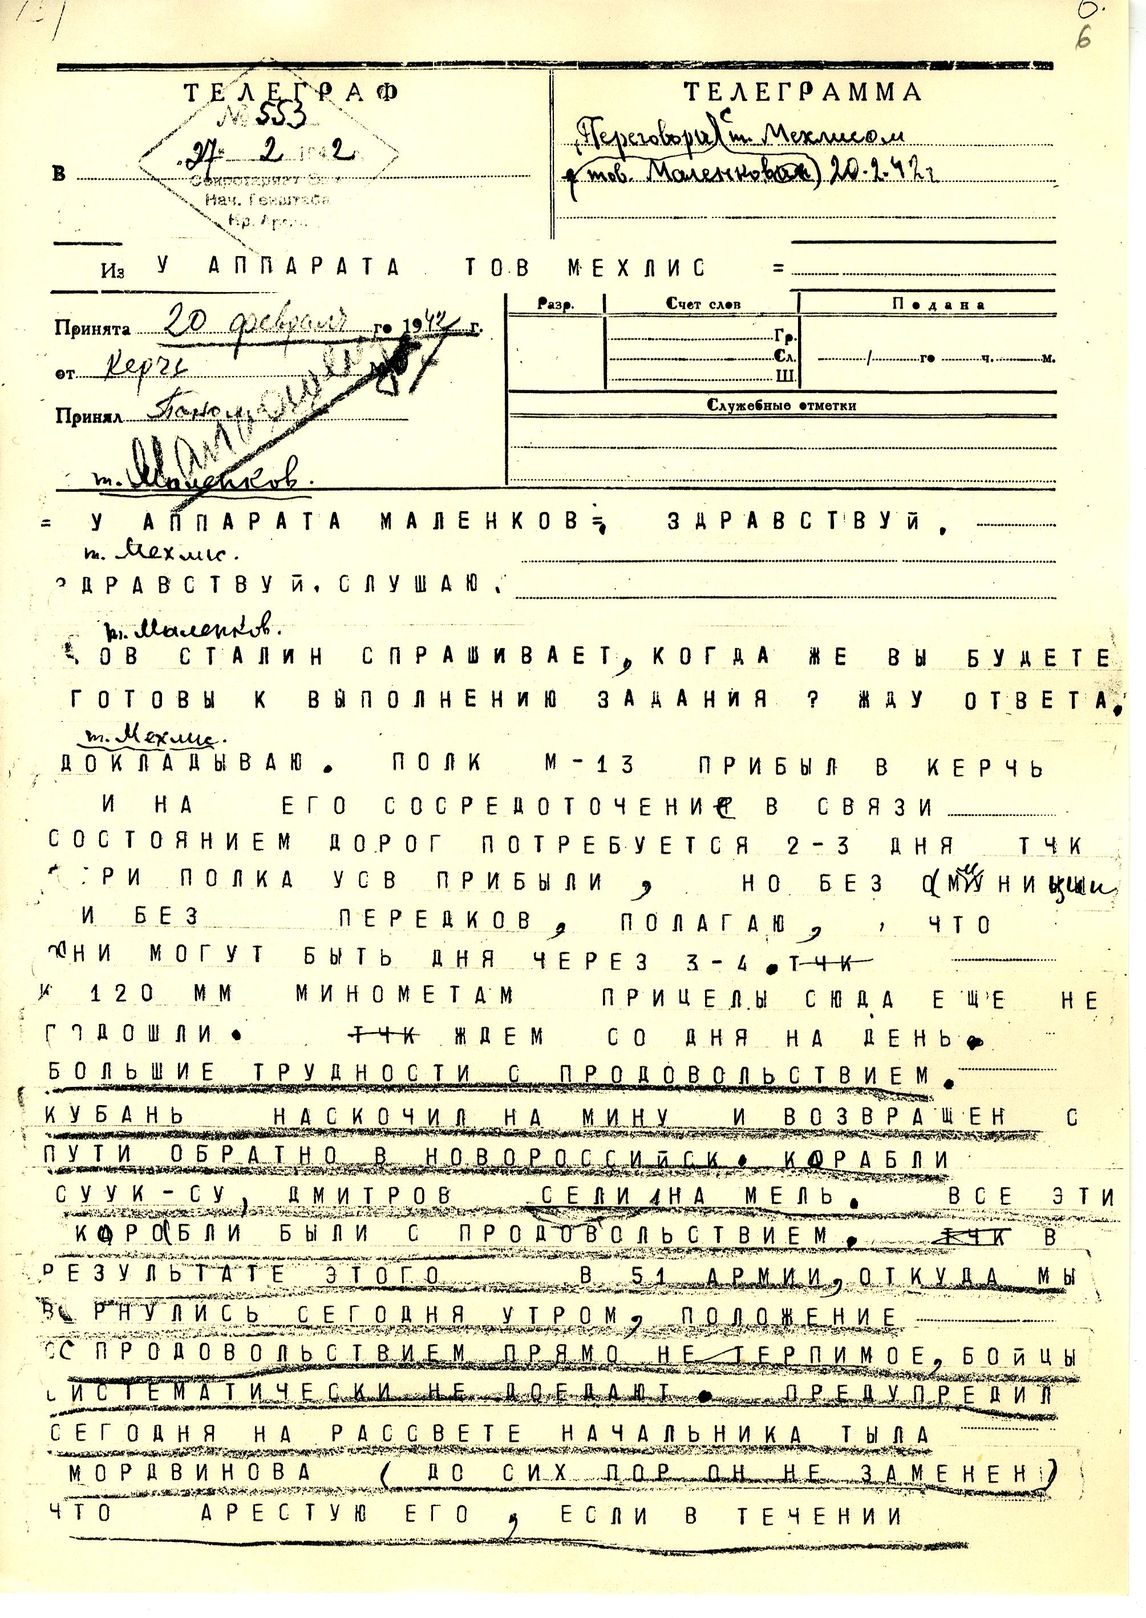 6
ТЕЛЕГРАФ
№ 553
27 2 1942
Нач. Генштаба
Кр. Арм
В
ТЕЛЕГРАММА
Переговоры с т. Мехлисом
тов. Маленкова) 20.2.42 г.
Из У АППАРАТА ТОВ МЕХЛИС =
Принята 20 февраля го 1942 г.
от Керчь
Принял
т. Маленков.
Разр. Счет слов Подана
Гр.
Сл.
Ш.
/ го ч. м.
Служебные отметки
= У АППАРАТА МАЛЕНКОВ=, ЗДРАВСТВУЙ.
т. Мехлис.
ЗДРАВСТВУЙ. СЛУШАЮ.
т. Маленков.
ТОВ СТАЛИН СПРАШИВАЕТ, КОГДА ЖЕ ВЫ БУДЕТЕ
ГОТОВЫ К ВЫПОЛНЕНИЮ ЗАДАНИЯ ? ЖДУ ОТВЕТА.
т. Мехлис.
ДОКЛАДЫВАЮ. ПОЛК М-13 ПРИБЫЛ В КЕРЧЬ
И НА ЕГО СОСРЕДОТОЧЕНИЕ В СВЯЗИ
СОСТОЯНИЕМ ДОРОГ ПОТРЕБУЕТСЯ 2-3 ДНЯ ТЧК
ТРИ ПОЛКА УСВ ПРИБЫЛИ, НО БЕЗ АМУНИЦИИ
И БЕЗ ПЕРЕДКОВ, ПОЛАГАЮ, ЧТО
ОНИ МОГУТ БЫТЬ ДНЯ ЧЕРЕЗ 3-4. ТЧК
К 120 ММ МИНОМЕТАМ ПРИЦЕЛЫ СЮДА ЕЩЕ НЕ
ПОДОШЛИ. ТЧК ЖДЕМ СО ДНЯ НА ДЕНЬ.
БОЛЬШИЕ ТРУДНОСТИ С ПРОДОВОЛЬСТВИЕМ.
КУБАНЬ НАСКОЧИЛ НА МИНУ И ВОЗВРАЩЕН С
ПУТИ ОБРАТНО В НОВОРОССИЙСК. КОРАБЛИ
СУУК-СУ, ДМИТРОВ СЕЛИ НА МЕЛЬ. ВСЕ ЭТИ
КОРАБЛИ БЫЛИ С ПРОДОВОЛЬСТВИЕМ. ТЧК В
РЕЗУЛЬТАТЕ ЭТОГО В 51 АРМИИ, ОТКУДА МЫ
ВЕРНУЛИСЬ СЕГОДНЯ УТРОМ, ПОЛОЖЕНИЕ
С ПРОДОВОЛЬСТВИЕМ ПРЯМО НЕ ТЕРПИМОЕ, БОЙЦЫ
СИСТЕМАТИЧЕСКИ НЕ ДОЕДАЮТ. ПРЕДУПРЕДИЛ
СЕГОДНЯ НА РАССВЕТЕ НАЧАЛЬНИКА ТЫЛА
МОРДВИНОВА ( ДО СИХ ПОР ОН НЕ ЗАМЕНЕН)
ЧТО АРЕСТУЮ ЕГО, ЕСЛИ В ТЕЧЕНИИ